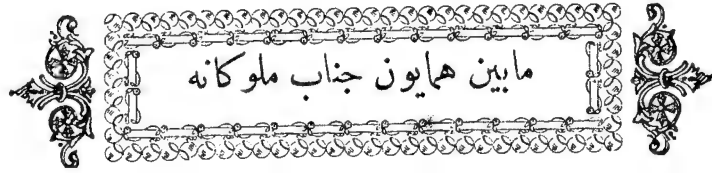 مابین همایون جناب ملوكانه